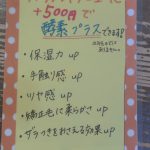 +500円で
酵素プラスできます!
・保湿力 up
・手触り感 up
・ツヤ感 up
・矯正毛に柔らかさ up
・ザラつきをおさえる効果 up